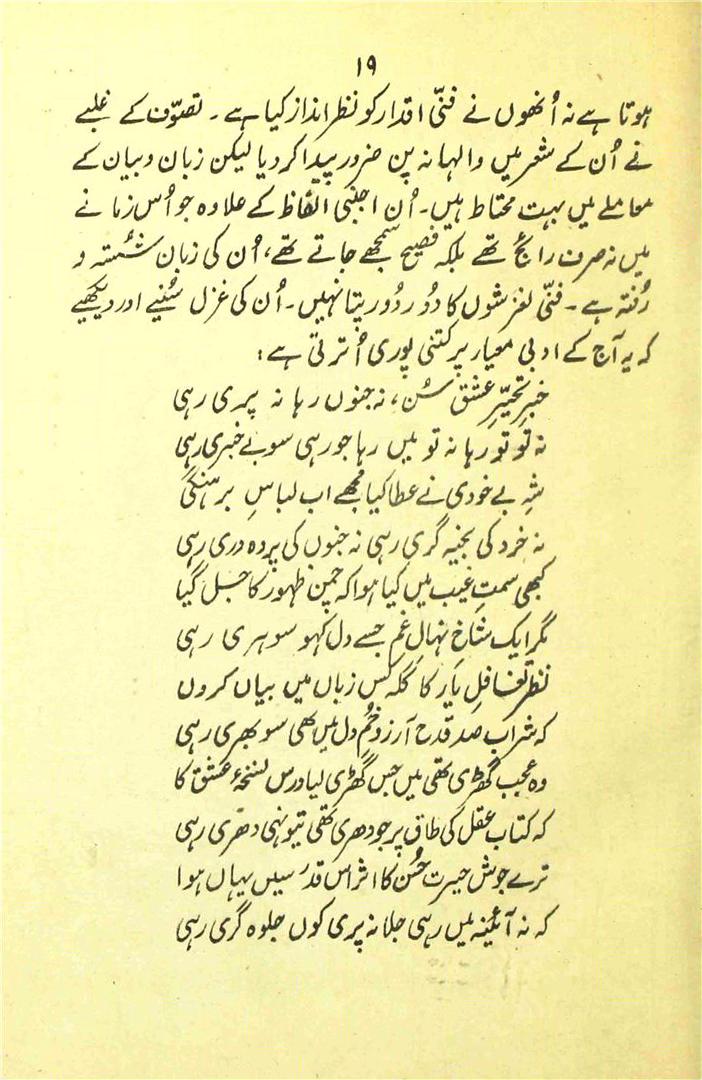 ۱۹
ہوتا ہے نہ اُنھوں نے فنّی اقدار کو نظر انداز کیا ہے۔ تصوّف کے غلبے
نے اُن کے شعر میں والہانہ پن ضرور پیدا کر دیا لیکن زبان و بیان کے
معاملے میں بہت محتاط ہیں۔ اُن اجنبی الفاظ کے علاوہ جو اُس زمانے
میں نہ صرف رائج تھے بلکہ فصیح سمجھے جاتے تھے، اُن کی زبان شُستہ و
رُفتہ ہے۔ فنّی لغزشوں کا دُور دُور پتا نہیں۔ اُن کی غزل سُنیے اور دیکھیے
کہ یہ آج کے ادبی معیار پر کتنی پوری اُترتی ہے:
خبرِ تحیّرِ عشق سُن، نہ جنوں رہا نہ پری رہی
نہ تو تو رہا نہ تو میں رہا جو رہی سو بے خبری رہی
شہِ بے خودی نے عطا کیا مجھے اب لباسِ برہنگی
نہ خرد کی بخیہ گری رہی نہ جنوں کی پردہ دری رہی
کبھی سمتِ غیب میں کیا ہوا کہ چمن ظہور کا جل گیا
مگر ایک شاخِ نہالِ غم جسے دل کہو سو ہری رہی
نظرِ تغافلِ یار کا گلہ کس زباں میں بیاں کروں
کہ شرابِ صد قدح آرزو خُمِ دل میں تھی سو بھری رہی
وہ عجب گھڑی تھی میں جس گھڑی لیا درس نسخۂ عشق کا
کہ کتاب عقل کی طاق پر جو دھری تھی تیونہی دھری رہی
ترے جوش حیرت حُسن کا اثر اس قدر سیں یہاں ہوا
کہ نہ آئینہ میں رہی جلا نہ پری کوں جلوہ گری رہی